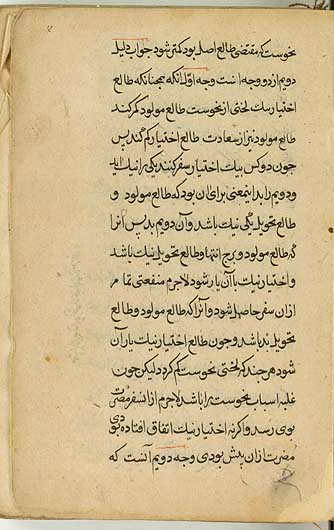 نحوست که مقتضی طالع اصل بود کمتر شود جواب دلیل
دویم از دو وجه است وجه اول آنکه همچنانکه طالع
اختیار نیک لختی از نحوست طالع مولود کم کند
طالع مولود نیز از سعادت طالع اختیار کم کند پس
چون دو کس بیک اختیار سفر کنند یکی را نیک آید
و دویم را بد اینمعنی برای آن بود که طالع مولود و
طالع تحویل یکی نیک باشد و آن دویم بد پس آنرا
که طالع مولود و برج انتها و طالع تحویل نیک باشد
و اختیار نیک با آن یار شود لاجرم منفعتی تمام
از آن سفر حاصل شود و آنرا که طالع مولود و طالع
تحویل بد باشد و چون طالع اختیار نیک یار آن
شود هر چند که لختی نحوست کم کردد لیکن چون
غلبه اسباب نحوست را باشد لاجرم از آن سفر مضرت
بوی رسد و اکر نه اختیار نیک اتفاق افتاده بودی
مضرت از آن بیش بودی وجه دویم آنست که